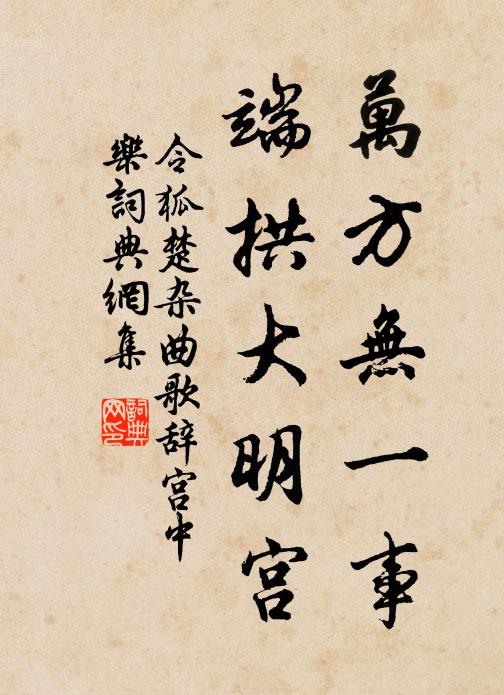 萬方無一事
端拱大明宫
令狐楚杂曲歌辞宫中
樂詞典網集
詞典
网印